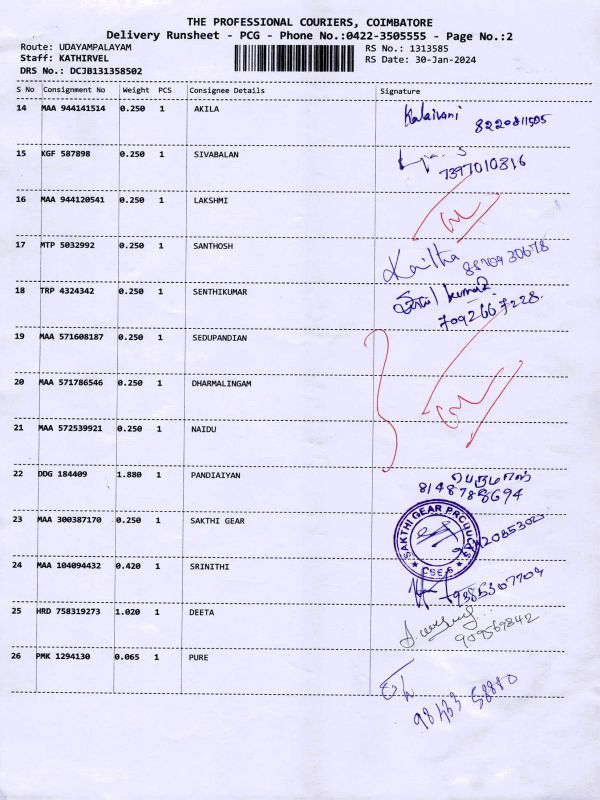 THE PROFESSIONAL COURIERS, COIMBATORE
Delivery Runsheet - PCG - Phone No.:0422-3505555 - Page No.:2
Route: UDAYAMPALAYAM RS No.: 1313585
Staff: KATHIRVEL RS Date: 30-Jan-2024
DRS No.: DCJB131358502
S No Consignment No Weight PCS Consignee Details Signature
14 MAA 944141514 0.250 1 AKILA Kalaivani
15 KGF 587898 0.250 1 SIVABALAN
7397010816
16 MAA 944120541 0.250 1 LAKSHMI
17 MTP 5032992 0.250 1 SANTHOSH
8870930678
18 TRP 4324342 0.250 1 SENTHIKUMAR
7092667228
19 MAA 571608187 0.250 1 SEDUPANDIAN
20 MAA 571786546 0.250 1 DHARMALINGAM
21 MAA 572539921 0.250 1 NAIDU
22 DDG 184409 1.880 1 PANDIAIYAN பெருமாள்
8148788694
23 MAA 300387170 0.250 1 SAKTHI GEAR SAKTHI GEAR PRODUCTS
24 MAA 104094432 0.420 1 SRINITHI
25 HRD 758319273 1.020 1 DEETA
26 PMK 1294130 0.065 1 PURE